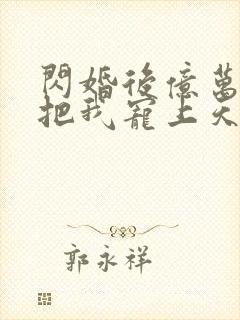 閃婚後億萬
把我寵上天
郭永祥